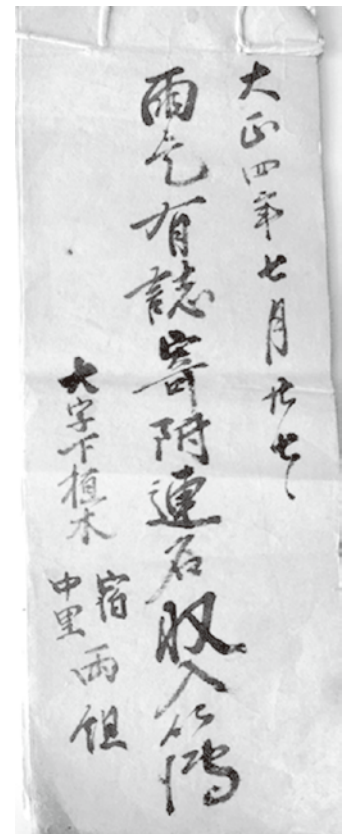 大正四年七月廿七日
雨乞有誌寄附連名収入簿
大字下植木
宿
中里
両組